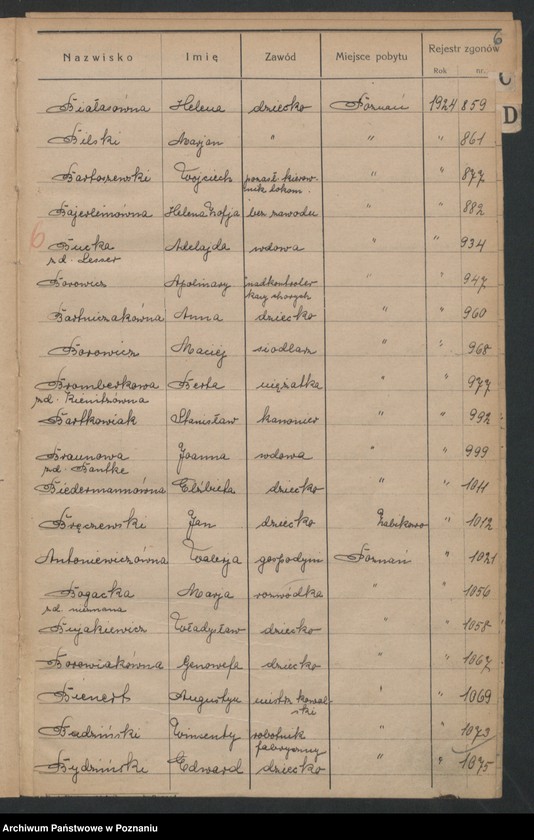 6
Nazwisko Imię Zawód Miejsce pobytu Rejestr zgonów
Rok nr.
D
Białasówna Helena dziecko Poznań 1924 859
Bilski Marjan " " " 861
Bartoszewski Wojciech pomocn. kierow- " " 877
nik lokom.
Bajerleinówna Helena Zofja bez zawodu " " 882
6
Bucka Adelajda wdowa " " 934
zd. Lesser
Borowicz Apolinary nadkontroler " " 947
kasy chorych
Bartniczakówna Anna dziecko " " 960
Borowicz Maciej siodlarz " " 968
Brombertkowa Berta mężatka " " 977
zd. Kienitzówna
Bartkowiak Stanisław kanonier " " 992
Braunowa Joanna wdowa " " 999
zd. Bantke
Biedermannówna Elżbieta dziecko " " 1011
Bręczewski Jan dziecko Żabikowo " 1012
Antoniewiczówna Walerja gospodyni Poznań " 1021
Bogacka Marja rozwódka " " 1056
zd. nieznana
Bujakiewicz Władysław dziecko " " 1058
Borowiakówna Genowefa dziecko " " 1067
Bienert Augustyn mistrz kowal- " " 1069
ski
Budziński Wincenty robotnik " " 1073
fabryczny
Bydziński Edward dziecko " " 1075
Archiwum Państwowe w Poznaniu